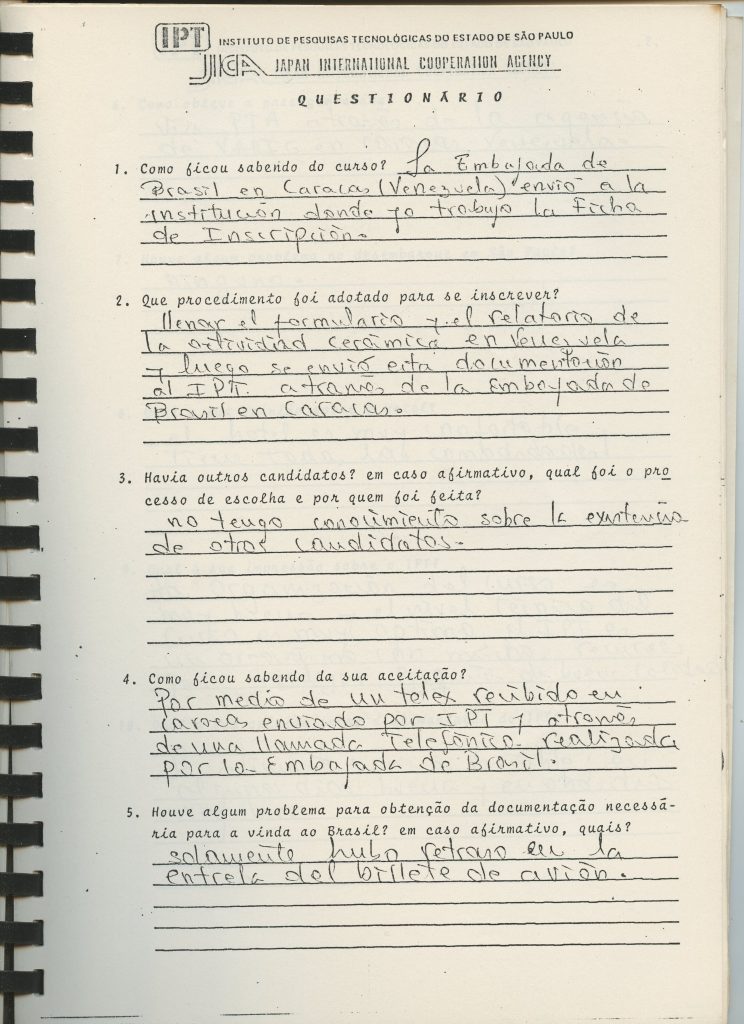 IPT INSTITUTO DE PESQUISAS TECNOLÓGICAS DO ESTADO DE SÃO PAULO
JICA JAPAN INTERNATIONAL COOPERATION AGENCY
QUESTIONÁRIO
1. Como ficou sabendo do curso? La Embajada de
Brasil en Caracas (Venezuela) envió a la
institución donde yo trabajo la Ficha
de Inscripción.
2. Que procedimento foi adotado para se inscrever?
llenar el formulario y el relatorio de
la actividad cerámica en Venezuela
y luego se envió esta documentación
al IPT. a través de la Embajada de
Brasil en Caracas.
3. Havia outros candidatos? em caso afirmativo, qual foi o pro
cesso de escolha e por quem foi feita?
no tengo conocimiento sobre la existencia
de otros candidatos.
4. Como ficou sabendo da sua aceitação?
Por medio de un telex recibido en
caracas enviado por IPT y através
de una llamada Telefónica realizada
por la Embajada de Brasil.
5. Houve algum problema para obtenção da documentação necessá-
ria para a vinda ao Brasil? em caso afirmativo, quais?
solamente hubo retraso en la
entrela del billete de avión.